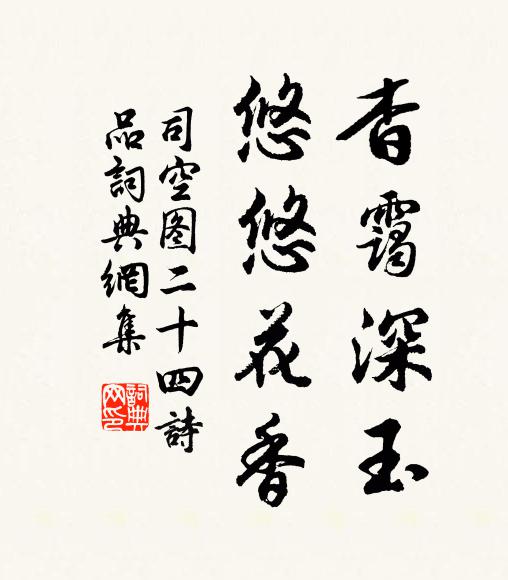 杳靄深玉
悠悠花香
司空图二十四詩
品詞典網集
詞典
网印